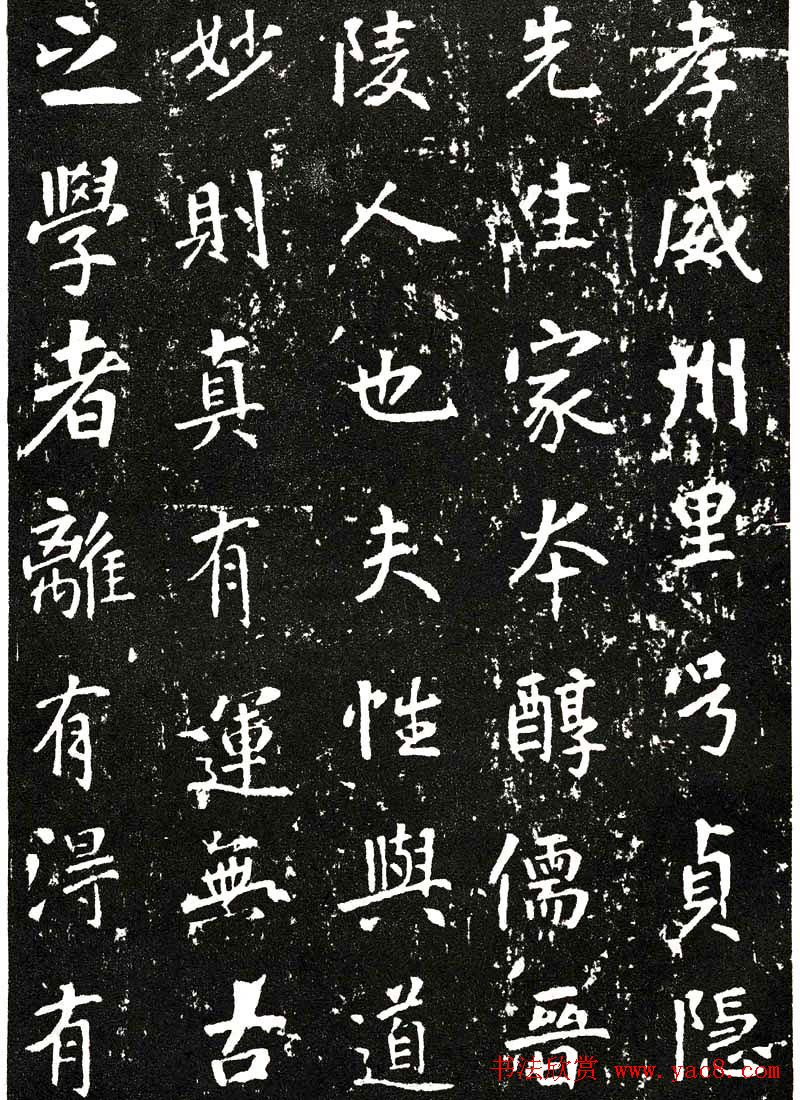 孝威州里号貞隱
先生家本醇儒晉
陵人也夫性與道
妙則真有運無古
之學者離有得有
书法欣赏 www.yac8.com